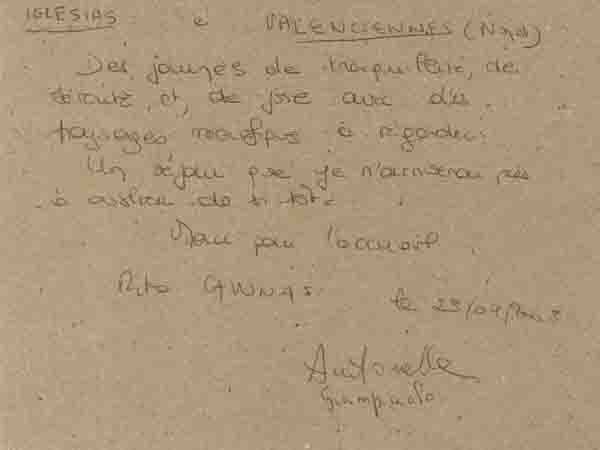 IGLESIAS e VALENCIENNES (Nord)
Des journes de tranquillité, de
sérenité, et, de joie avec des
paysages magnifiques à régarder.
Un séjour que je n'arriverai pas
à oublier de si tôt.
Merci pour l'accueil.
Rita
le 23/04/
Antonella
Giampaolo